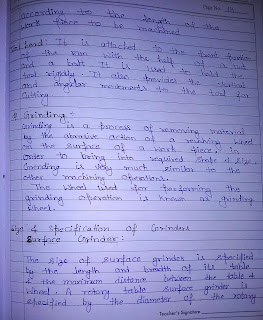 according to the length of the
work piece to be machined
Head: It is attached to the front portion
of the ram with the help of a nut
and a bolt. It is used to hold the
tool rigidly. It also provides the vertical
and angular movements to the tool for
cutting
Grinding:-
Grinding is a process of removing material
by the abrasive action of a revolving wheel
on the surface of a work piece in
order to bring into required shape & size.
Grinding is very much similar to the
other machining operations.
The wheel used for performing the
grinding operation is known as grinding
wheel.
Size & Specification of Grinders
Surface Grinder:
The size of surface grinder is specified
by the length and breadth of its table
& the maximum distance between the table &
wheel. A rotary table surface grinder is
specified by the diameter of the rotary
Page No.
Teacher's Signature